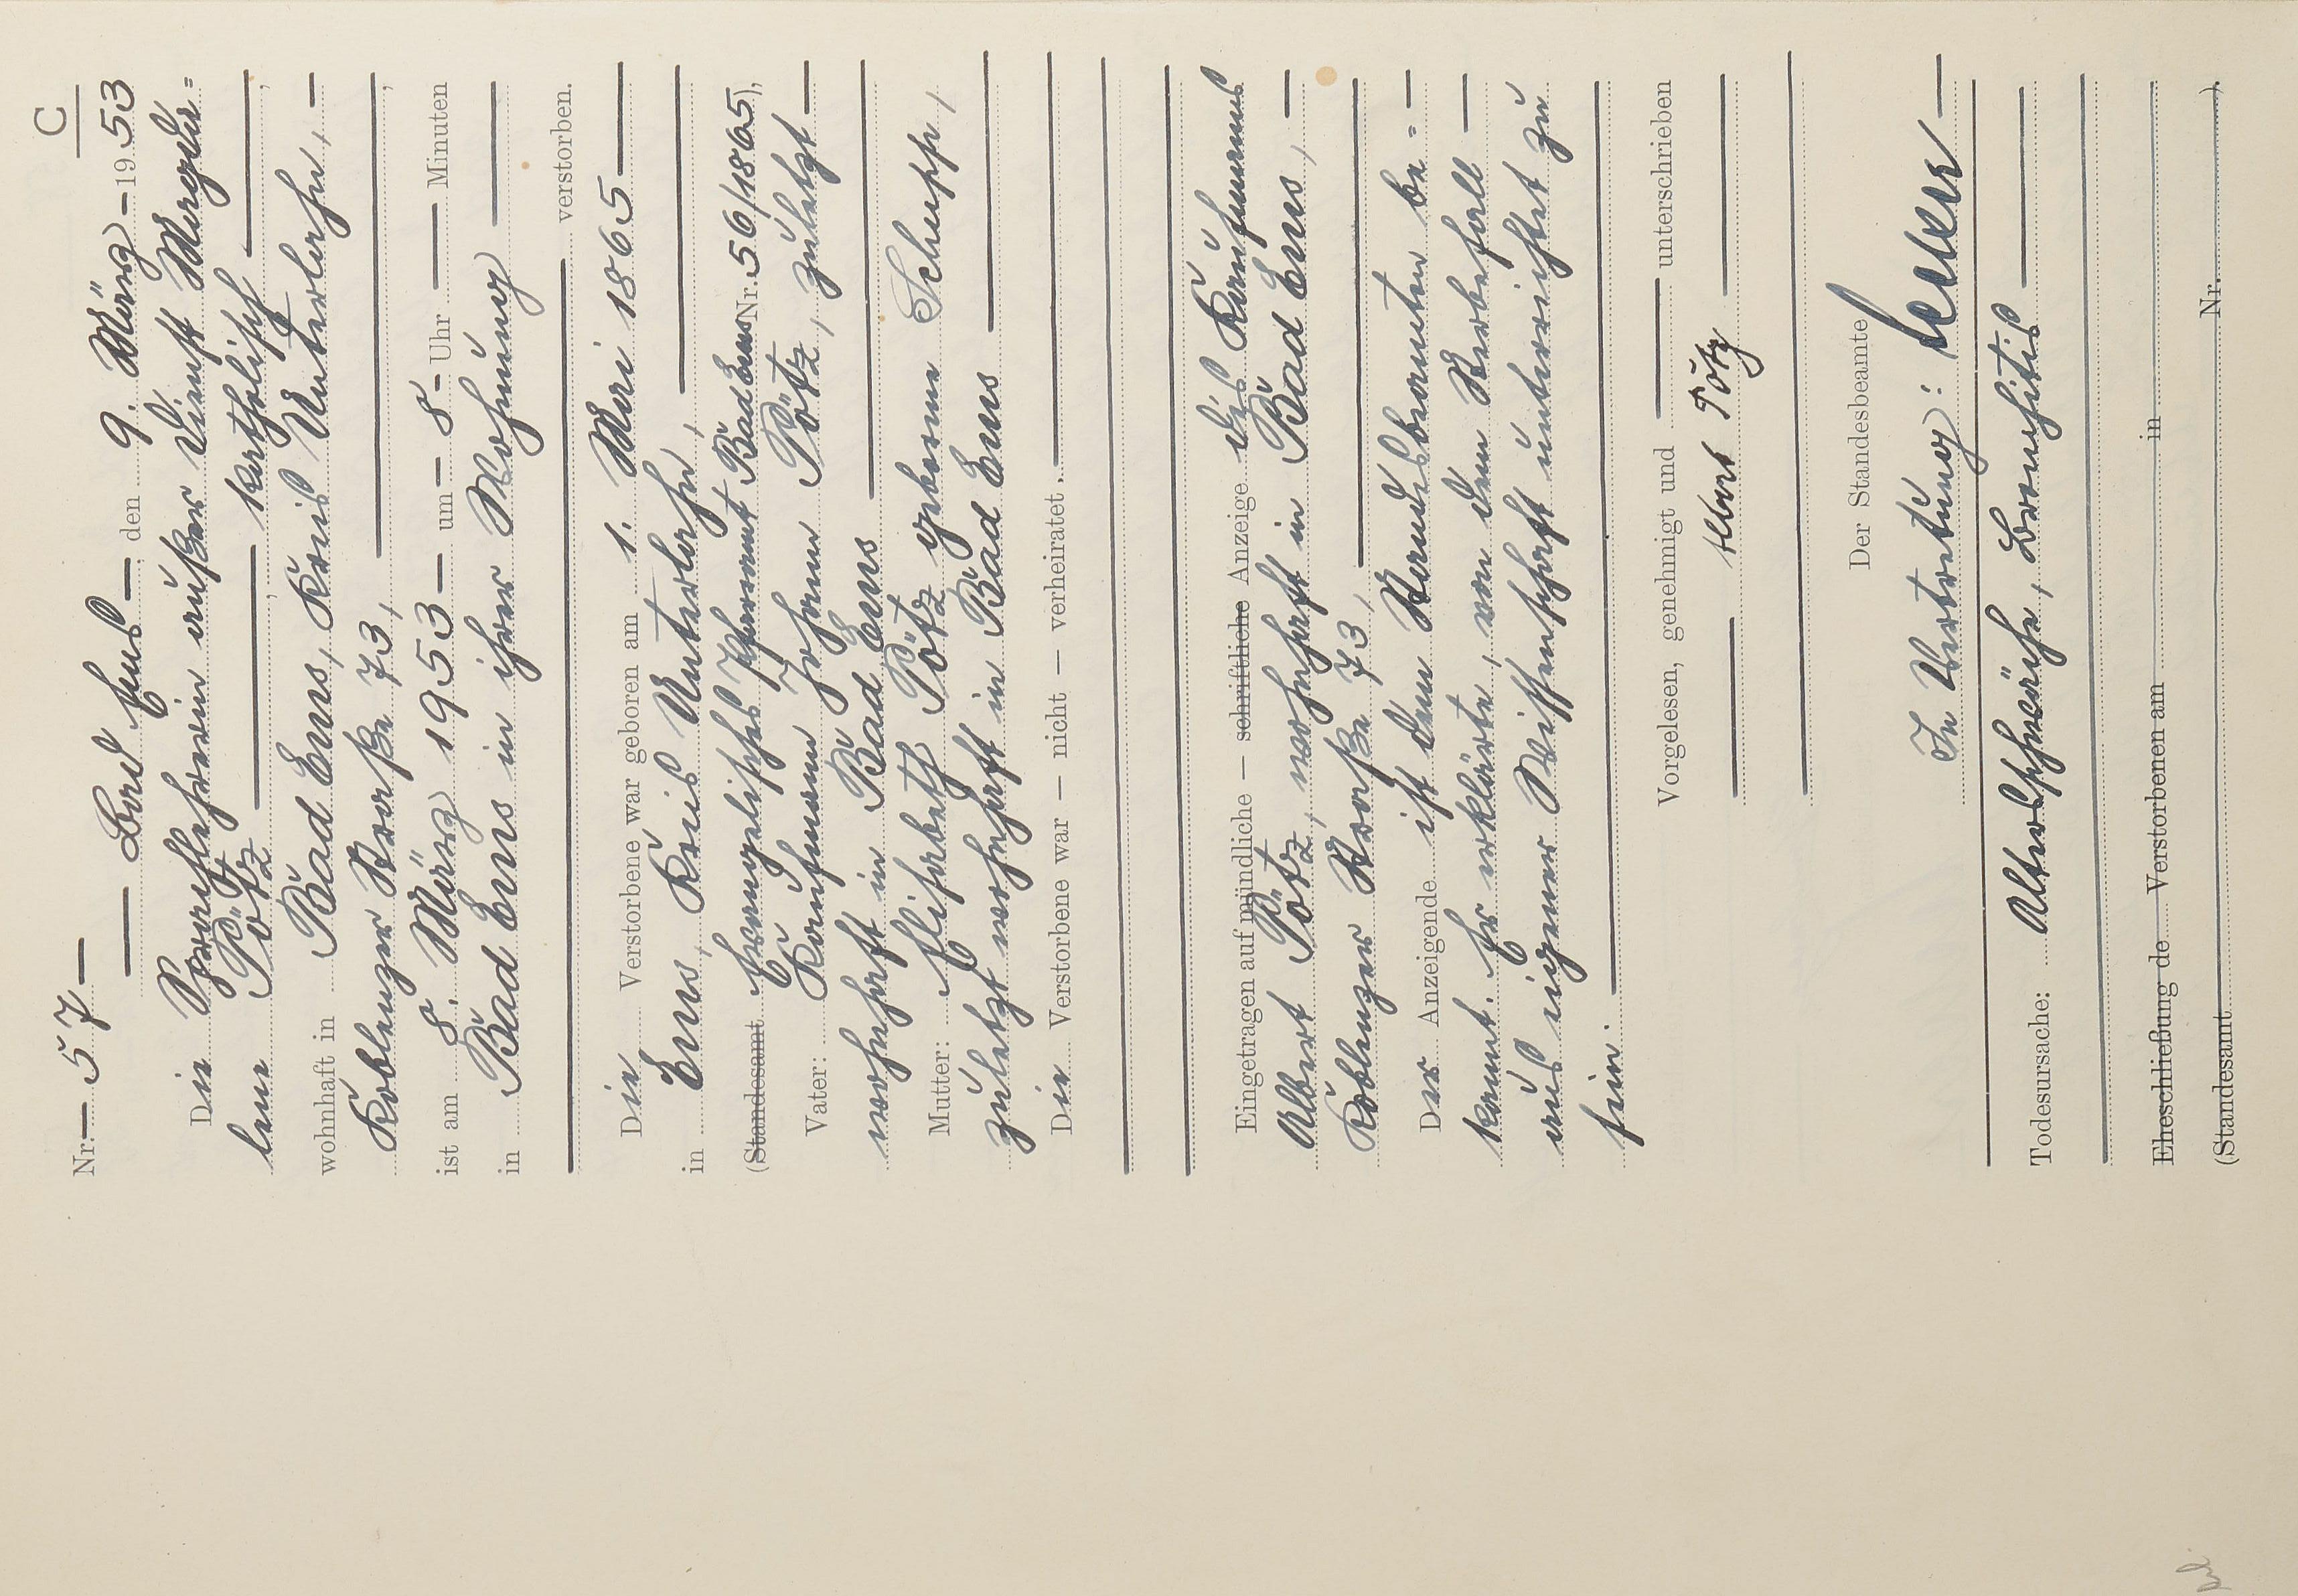 C
Nr. 57
Bad Ems, den 9. März 1953
Die Sprachlehrerin außer Dienst Magda=
lene Pötz, katholisch,
wohnhaft in Bad Ems, Kreis Unterlahn,
Koblenzer Straße 73,
ist am 8. März 1953 um 8 Uhr Minuten
in Bad Ems in ihrer Wohnung
verstorben.
Die Verstorbene war geboren am 1. Mai 1865
in Ems, Kreis Unterlahn,
(Standesamt Evangelisches Pfarramt Bad Ems Nr. 56/1865).
Vater: Kaufmann Johann Pötz, zuletzt
wohnhaft in Bad Ems
Mutter: Elisabeth Pötz geborene Schupp,
zuletzt wohnhaft in Bad Ems
Die Verstorbene war — nicht — verheiratet.
Eingetragen auf mündliche — schriftliche Anzeige des Kaufmanns
Albert Pötz, wohnhaft in Bad Ems,
Koblenzer Straße 73,
Der Anzeigende ist dem Standesbeamten be=
kannt. Er erklärte, von dem Sterbefall
aus eigener Wissenschaft unterrichtet zu
sein.
Vorgelesen, genehmigt und unterschrieben
Albert Pötz
Der Standesbeamte
In Vertretung:
Todesursache: Altersschwäche, Bronchitis
Eheschließung de Verstorbenen am in
(Standesamt Nr. ).